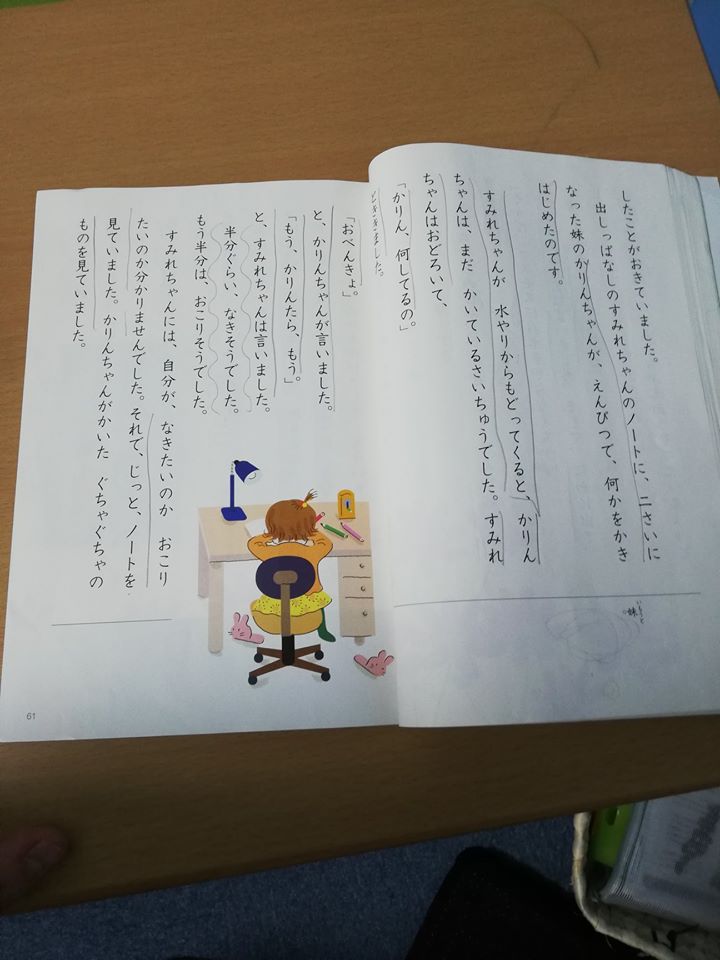 したことがおきていました。
出しっぱなしのすみれちゃんのノートに、二さいに
なった妹のかりんちゃんが、えんぴつで、何かをかき
はじめたのです。
すみれちゃんが 水やりからもどってくると、かりん
ちゃんは、まだ かいているさいちゅうでした。すみれ
ちゃんはおどろいて、
「かりん、何してるの。」
とききました。
いもうと
妹
「おべんきょ。」
と、かりんちゃんが言いました。
「もう、かりんたら、もう。」
と、すみれちゃんは言いました。
半分ぐらい、なきそうでした。
もう半分は、おこりそうでした。
すみれちゃんには、自分が、なきたいのか おこり
たいのか分かりませんでした。それで、じっと、ノートを
見ていました。かりんちゃんがかいた ぐちゃぐちゃの
ものを見ていました。
61